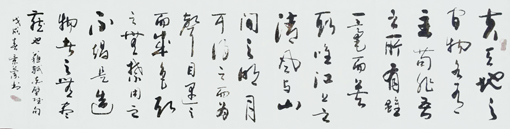 夫天地之
間物各有
主苟非吾
之所有雖
一毫而莫
取惟江上之
清風与山
間之明月
耳得之而為
聲目遇之
而成色取
之無禁用之
不竭是造
物者之無盡
藏也
戊戌